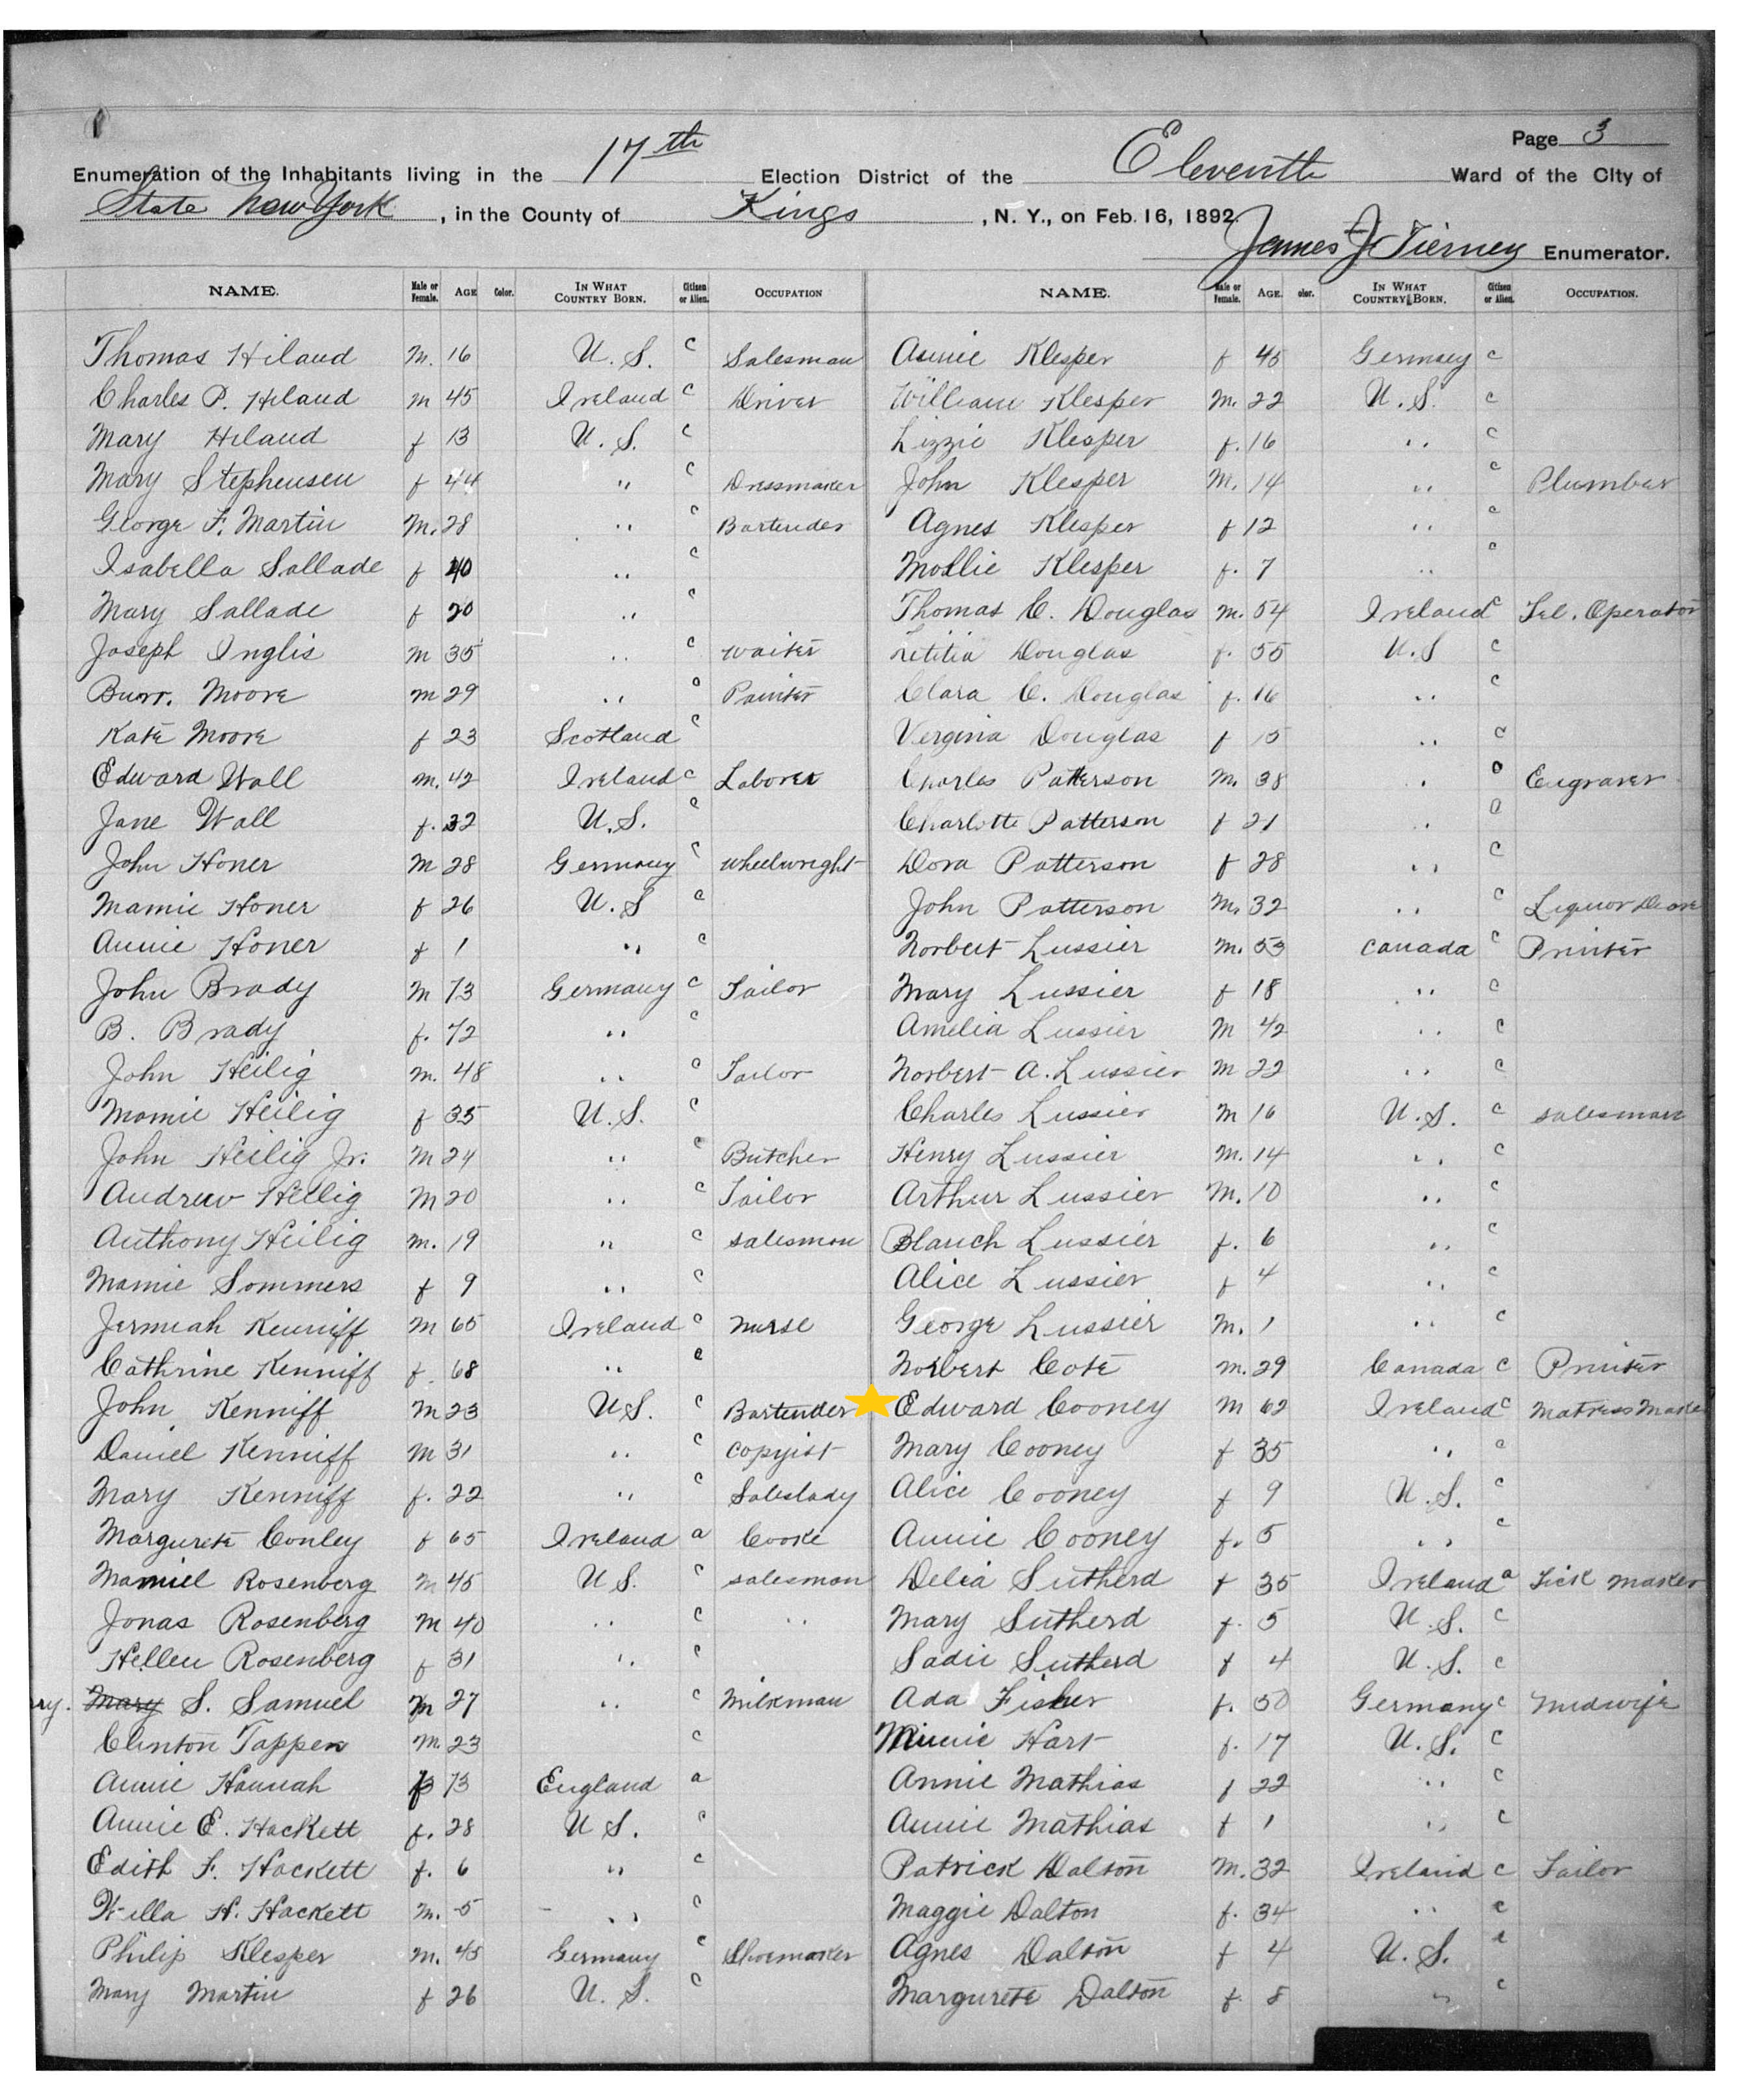 Page 3
Enumeration of the Inhabitants living in the 17th Election District of the Eleventh Ward of the City of
State New York, in the County of Kings, N. Y., on Feb. 16, 1892
James J Tierney Enumerator.
NAME. Male or Female. AGE Color. IN WHAT COUNTRY BORN. Citizen or Alien. OCCUPATION NAME. Male or Female. AGE. olor. IN WHAT COUNTRY BORN. Citizen or Alien. OCCUPATION.
Thomas Hiland M. 16 U. S. c Salesman
Charles P. Hiland m 45 Ireland c Driver
Mary Hiland f 13 U. S. c
Mary Stephensen f 44 " c Dressmaker
George F. Martin M. 28 " c Bartender
Isabella Sallade f 40 " c
Mary Sallade f 20 " c
Joseph Inglis m 35 " c waiter
Burr. Moore m 29 " c Painter
Kate Moore f 23 Scotland c
Edward Wall m. 42 Ireland c Laborer
Jane Wall f. 32 U.S. c
John Honer m 28 Germany c wheelwright
Mamie Honer f 26 U. S c
Annie Honer f 1 " c
John Brady m 73 Germany c Tailor
B. Brady f. 72 " c
John Heilig m. 48 " c Tailor
Mamie Heilig f 35 U. S. c
John Heilig Jr. m 24 " c Butcher
Andrew Heilig m 20 " c Tailor
Anthony Heilig m. 19 " c salesman
Mamie Sommers f 9 " c
Jermiah Kenniff m 65 Ireland c nurse
Cathrine Kenniff f. 68 " c
John Kenniff m 23 U S. c Bartender
Daniel Kenniff m 31 " c copyist
Mary Kenniff f. 22 " c Saleslady
Margurete Conley f 65 Ireland a Cooke
Rosenberg m 45 U S. c salesman
Jonas Rosenberg m 40 " c "
Hellen Rosenberg f 31 " c
ry. Mary S. Samuel m 27 " c milkman
Clinton Tappen m. 23 c
Annie Hannah f 73 England a
Annie E. Hackett f. 28 U S. c
Edith F. Hackett f. 6 " c
Willa H. Hackett m. 5 " c
Philip Klesper m. 45 Germany c Shoemaker
Mary Martin f 26 U. S. c
Annie Klesper f 45 Germany c
William Klesper m. 22 U. S. c
Lizzie Klesper f. 16 " c
John Klesper m. 14 " c Plumber
Agnes Klesper f 12 " c
Mollie Klesper f. 7 " c
Thomas C. Douglas m. 54 Ireland c Tel. Operator
Letitia Douglas f. 55 U. S c
Clara C. Douglas f. 16 " c
Verginia Douglas f 15 " c
Charles Patterson m. 38 " c Engraver
Charlotte Patterson f 21 " c
Dora Patterson f 28 " c
John Patterson m. 32 " c Liquor
Norbert Lussier m. 53 Canada c Printer
Mary Lussier f 18 " c
Amelia Lussier M 42 " c
Norbert A. Lussier m 22 " c
Charles Lussier m 16 U. S. c salesman
Henry Lussier m. 14 " c
Arthur Lussier m. 10 " c
Blanch Lussier f. 6 " c
Alice Lussier f 4 " c
George Lussier m. 1 " c
Norbert Cote m. 29 Canada c Printer
Edward Cooney m 62 Ireland c Matress Make
Mary Cooney f 35 " c
Alice Cooney f 9 U. S. c
Annie Cooney f. 5 " c
Delia Sutherd f 35 Ireland a Tick maker
Mary Sutherd f. 5 U. S. c
Sadie Sutherd f 4 U. S. c
Ada Fisher f. 50 Germany c midwife
Minnie Hart f. 17 U. S. c
Annie Mathias f 22 " c
Annie Mathias f 1 " c
Patrick Dalton m. 32 Ireland c Tailor
Maggie Dalton f. 34 " c
Agnes Dalton f 4 U. S. c
Margurete Dalton f. 8 " c